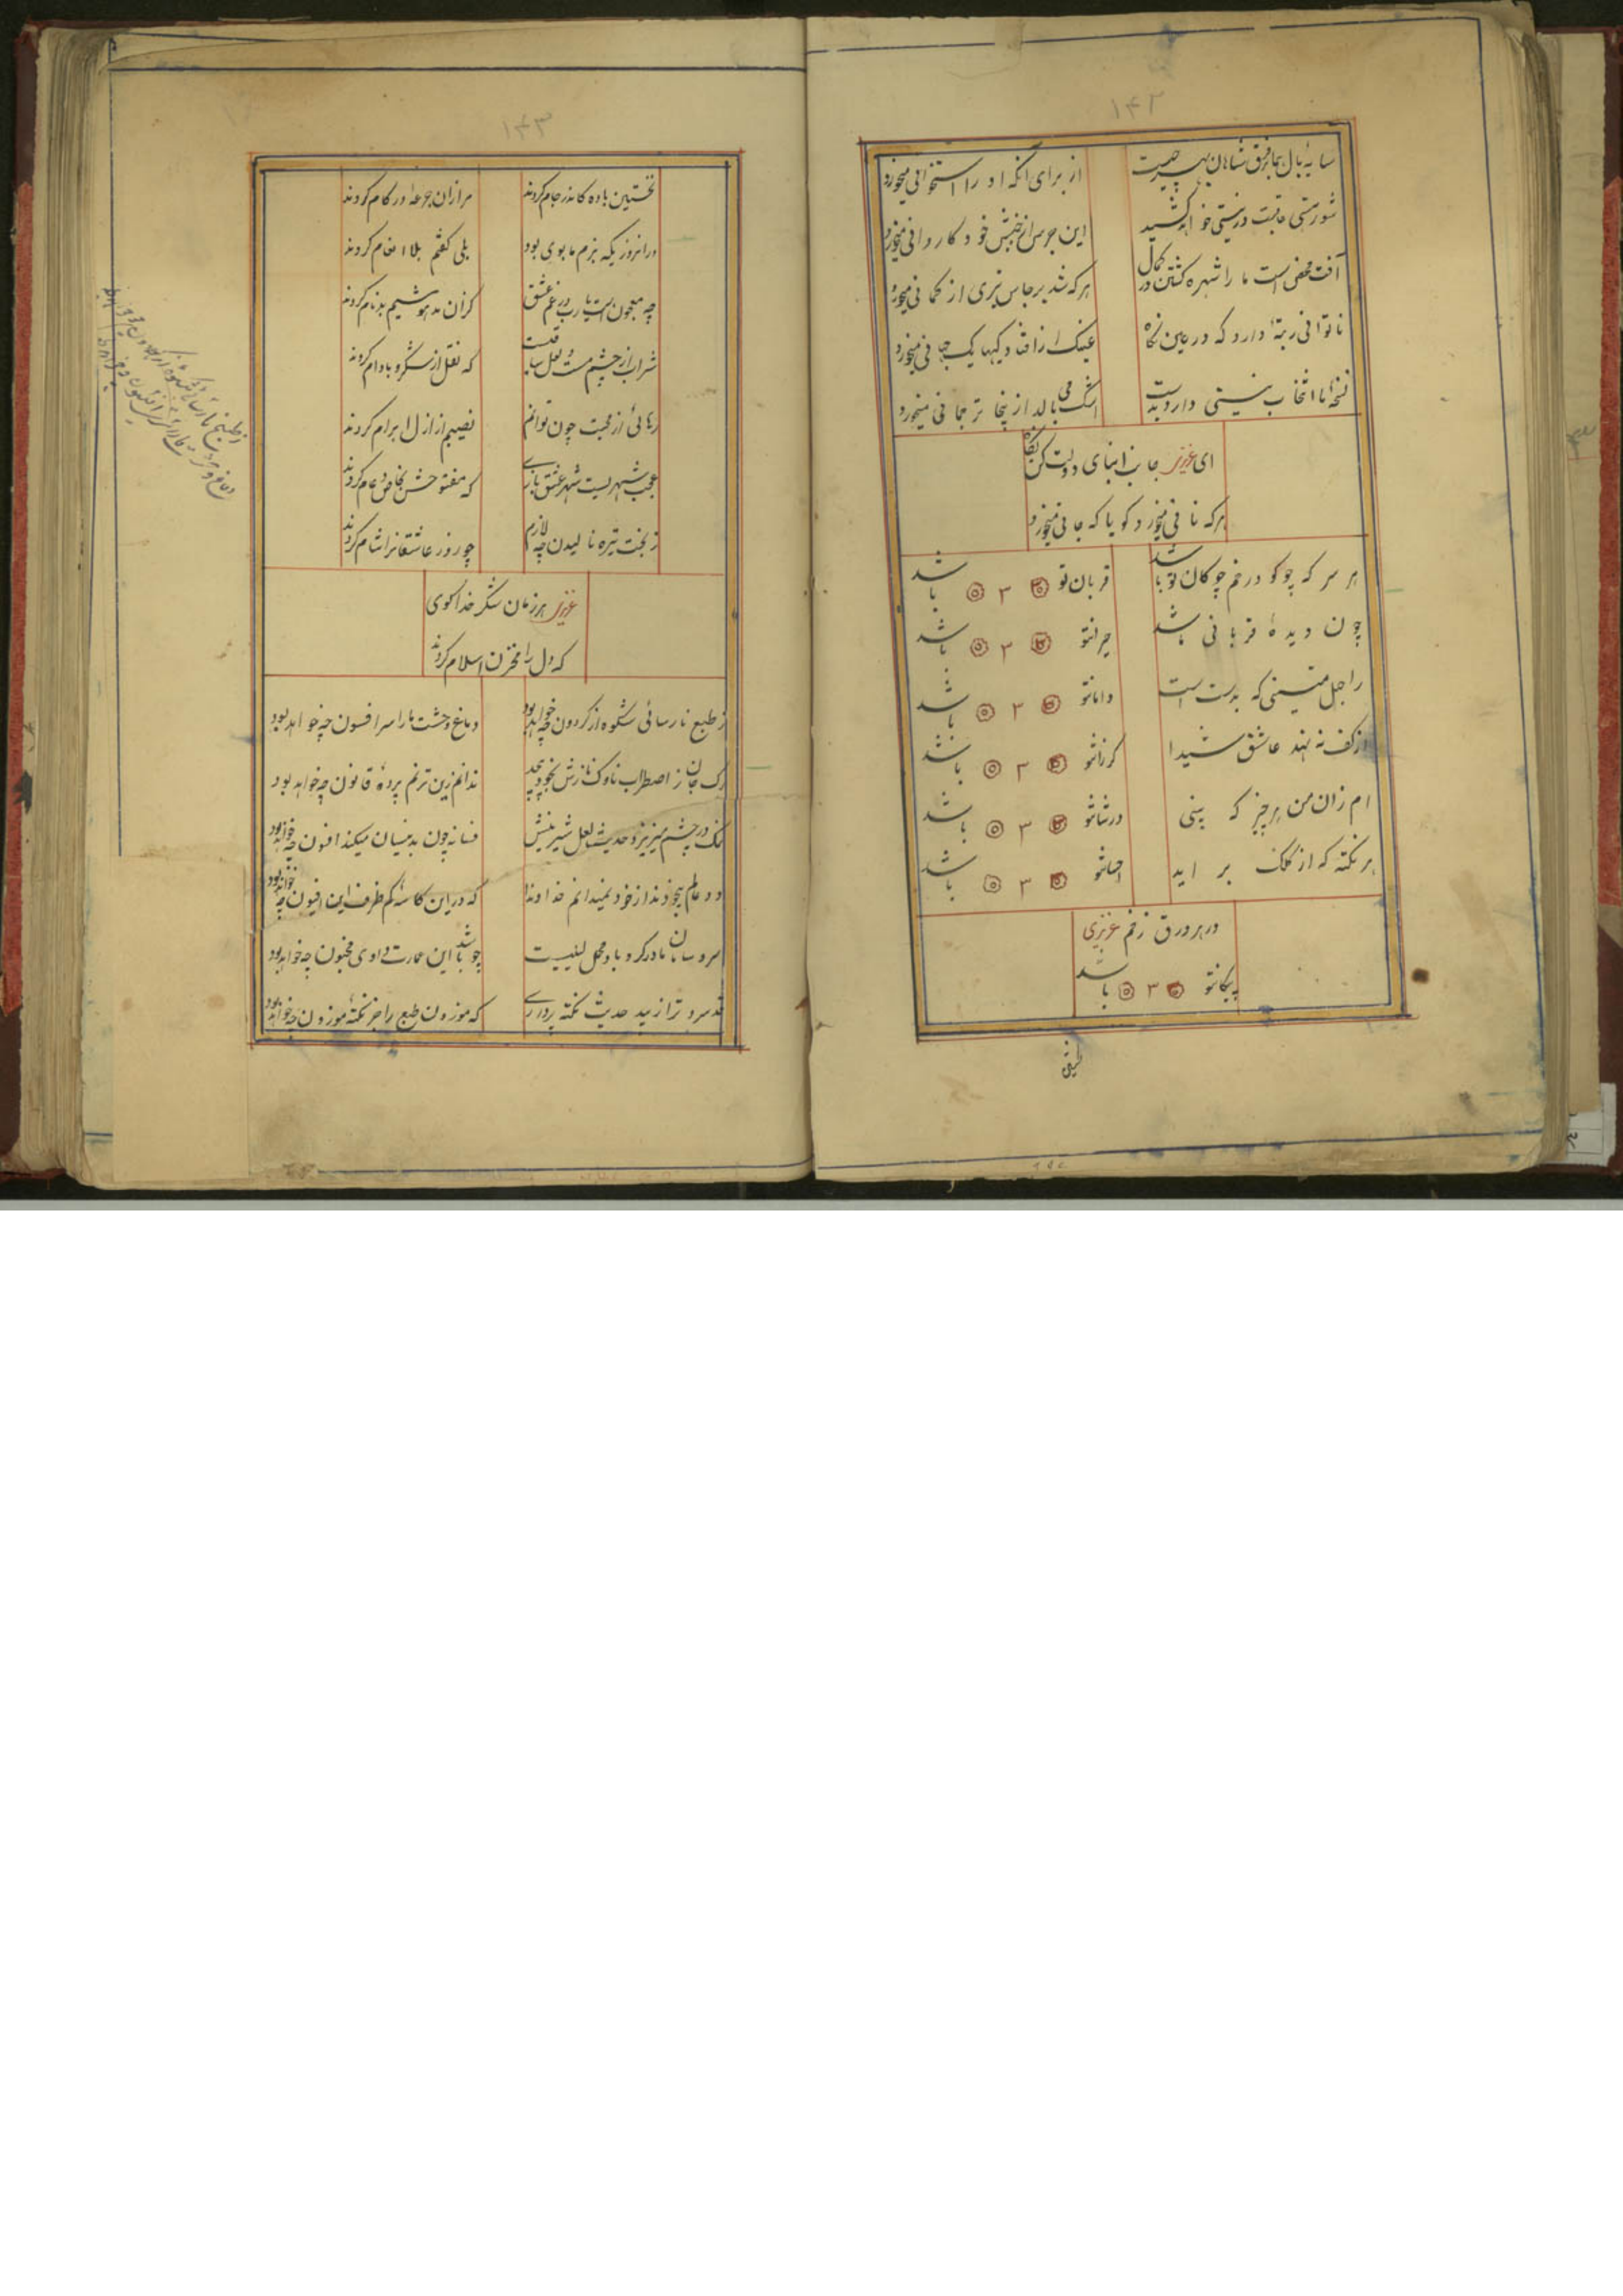 ۱۴۲
سایهٔ بال هما برفرق شاهان بهر چیست
از برای انکه او را استخوانی میخورد
شورهستی عاقبت در نیستی خواهد کشید
این جرس از جنبش خود کاروانی میخورد
آفت محض است ما را شهره کشتن در کمال
هرکه شد برجاس تیری از کمانی میخورد
ناتوانی ربتهٔ دارد که در عین نکاه
عینک از افتادکیها یک جهانی میخورد
نسخهٔ ما انتخاب نیستی دارد بدست
اشک می بالد از ینجا ترجمانی میخورد
ای عزیز جانب ابنای دولت کن نکاه
هرکه نانی میخورد کویا که جانی میخورد
هر سر که چو کو در خم چوکان تو باشد
قربان تو ۳ باشد
چون دیدهٔ قربانی باشد
حیرانتو ۳ باشد
را جل متینی که بدست است
دامانتو ۳ باشد
از کف ننهد عاشق شیدا
کرزانتو ۳ باشد
ام زان من هرچیز که بینی
درشانتو ۳ باشد
هر نکته که از کلک بر اید
احسانتو ۳ باشد
در هر ورق زقم عزیزی
پیکانتو ۳ باشد
۱۴۳
نخستین باده کاندر جام کردند
مرا زان جرعه در کام کردند
در انروزیکه بزم ما بوی بود
بلی کفتم بلا انعام کردند
چه معجون است یارب در غم عشق
کزان مدهوشیم بدنام کردند
شراب از چشم مست و لعل ساقیت
که نقل از شکر و بادام کردند
رهائی از محبت چون توانم
نصیبم از ازل ابرام کردند
عجب شهریست شهر عشق بازے
که مفتوحش بخاص و عام کردند
ز بخت تیره نالیدن چه لازم
چو روز عاشقانرا شام کردند
عزیز هرزمان شکر خدا کوی
که دل را مخزن اسلام کردند
ز طبع نارسائی شکوه از کردون چه خواهد بود
دماغ وحشت ما را سر افسون چه خواهد بود
رک جان ز اضطراب ناوک نازش بخود پیچد
ندانم زین ترنم پردهٔ قانون چه خواهد بود
نمک در چشم میریزد حدیث لعل شیرینش
فسانه چون بدینسان میکند افسون چه خواهد بود
دو عالم بیخودند از خود نمیدانم خداوندا
که در این کاسهٔ کم ظرف این افیون چه خواهد بود
سروسامان ما در کرد باد محمل لیلیست
چو باشد این عمارت داوی مجنون چه خواهد بود
قدسرو ترا زیبد حدیث نکته پردازے
که موزون طبع را جز نکتهٔ موزون چه خواهد بود